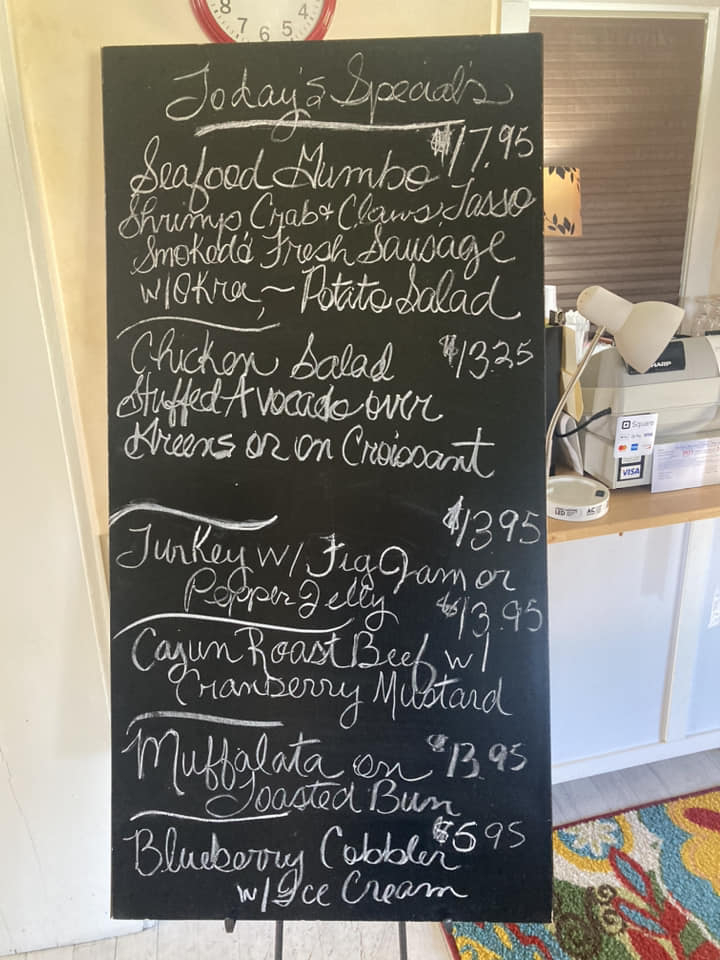 8 7 6 5 4
Today's Specials
$17.95
Seafood Gumbo
Shrimp, Crab & Claws, Tasso
Smoked & Fresh Sausage
w/Okra, ~ Potato Salad
Chicken Salad $13.25
Stuffed Avocado over
Greens or on Croissant
$13.95
Turkey w/ Fig Jam or
Pepper Jelly
$13.95
Cajun Roast Beef w/
Cranberry Mustard
Muffalata on $13.95
Toasted Bun
Blueberry Cobbler $5.95
w/Ice Cream
SHARP
Square
VISA
VISA
LED
AC